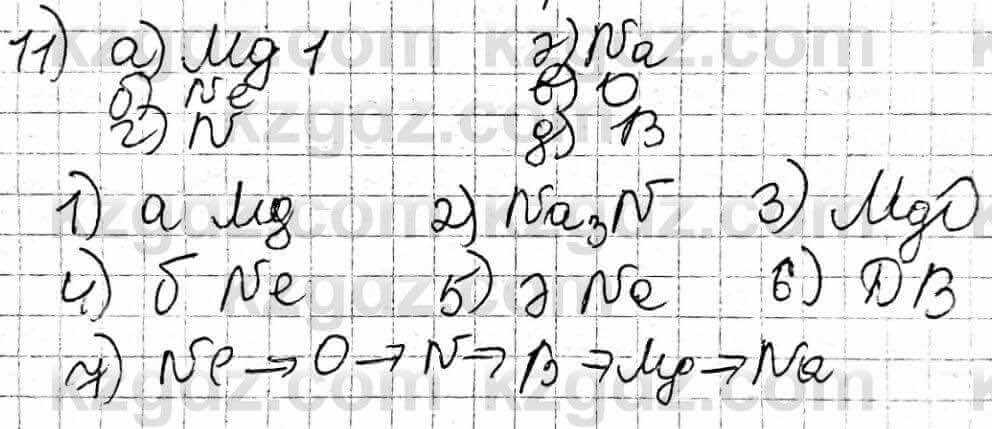 11) а) Mg 1 ә) Na
б) Ne в) O
г) N д) B
1) а Mg 2) Na₃N 3) MgO
4) б Ne 5) ә Na 6) Д B
7) Ne → O → N → B → Mg → Na
kzgdz.com